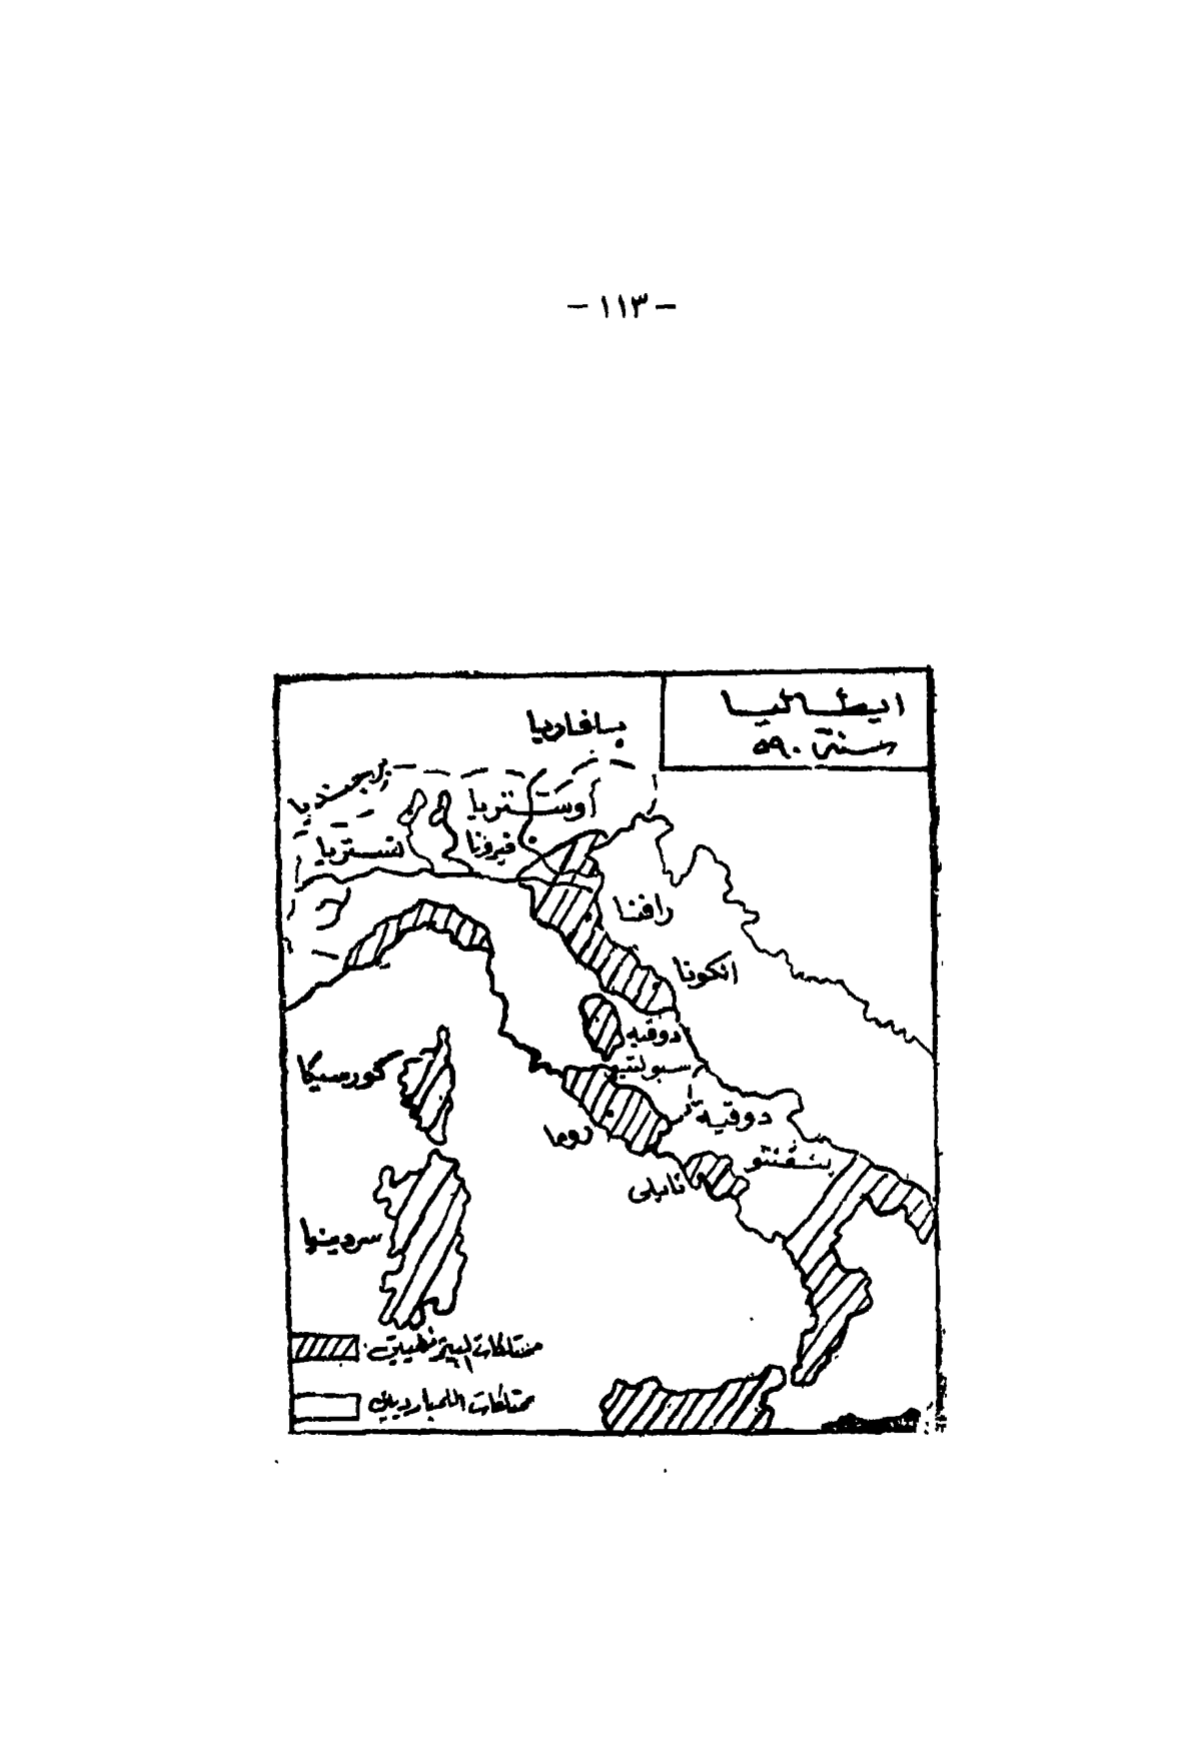 - ١١٣ -
ايطاليا
سنة ٥٩٠
بافاريا
برجنديا
أوستريا
نستريا
فيرونا
رافنا
انكونا
دوقية
سبوليتو
كورسيكا
دوقية
بنفنتو
روما
نابلي
سردينيا
ممتلكات البيزنطيين
ممتلكات اللمبارديين